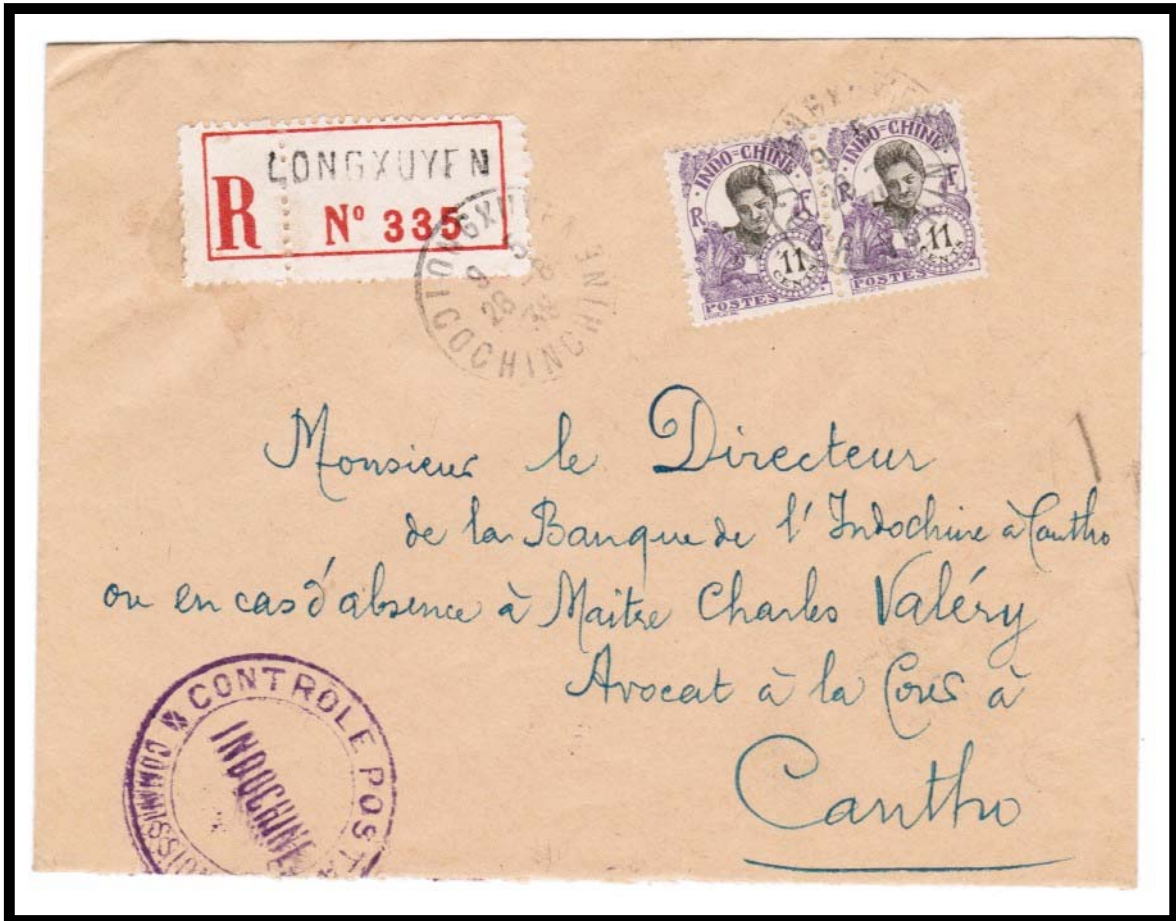 LONGXUYEN
R Nº 335
LONGXUYEN
9 5
28 -8
COCHINCHINE
INDO=CHINE
R F
11
CENTS
POSTES
INDO=CHINE
R F
11
CENTS
POSTES
Monsieur le Directeur
de la Banque de l'Indochine à Cantho
ou en cas d'absence à Maître Charles Valéry
Avocat à la Cour à
Cantho
CONTROLE POST
INDOCHINE
COMMISSION